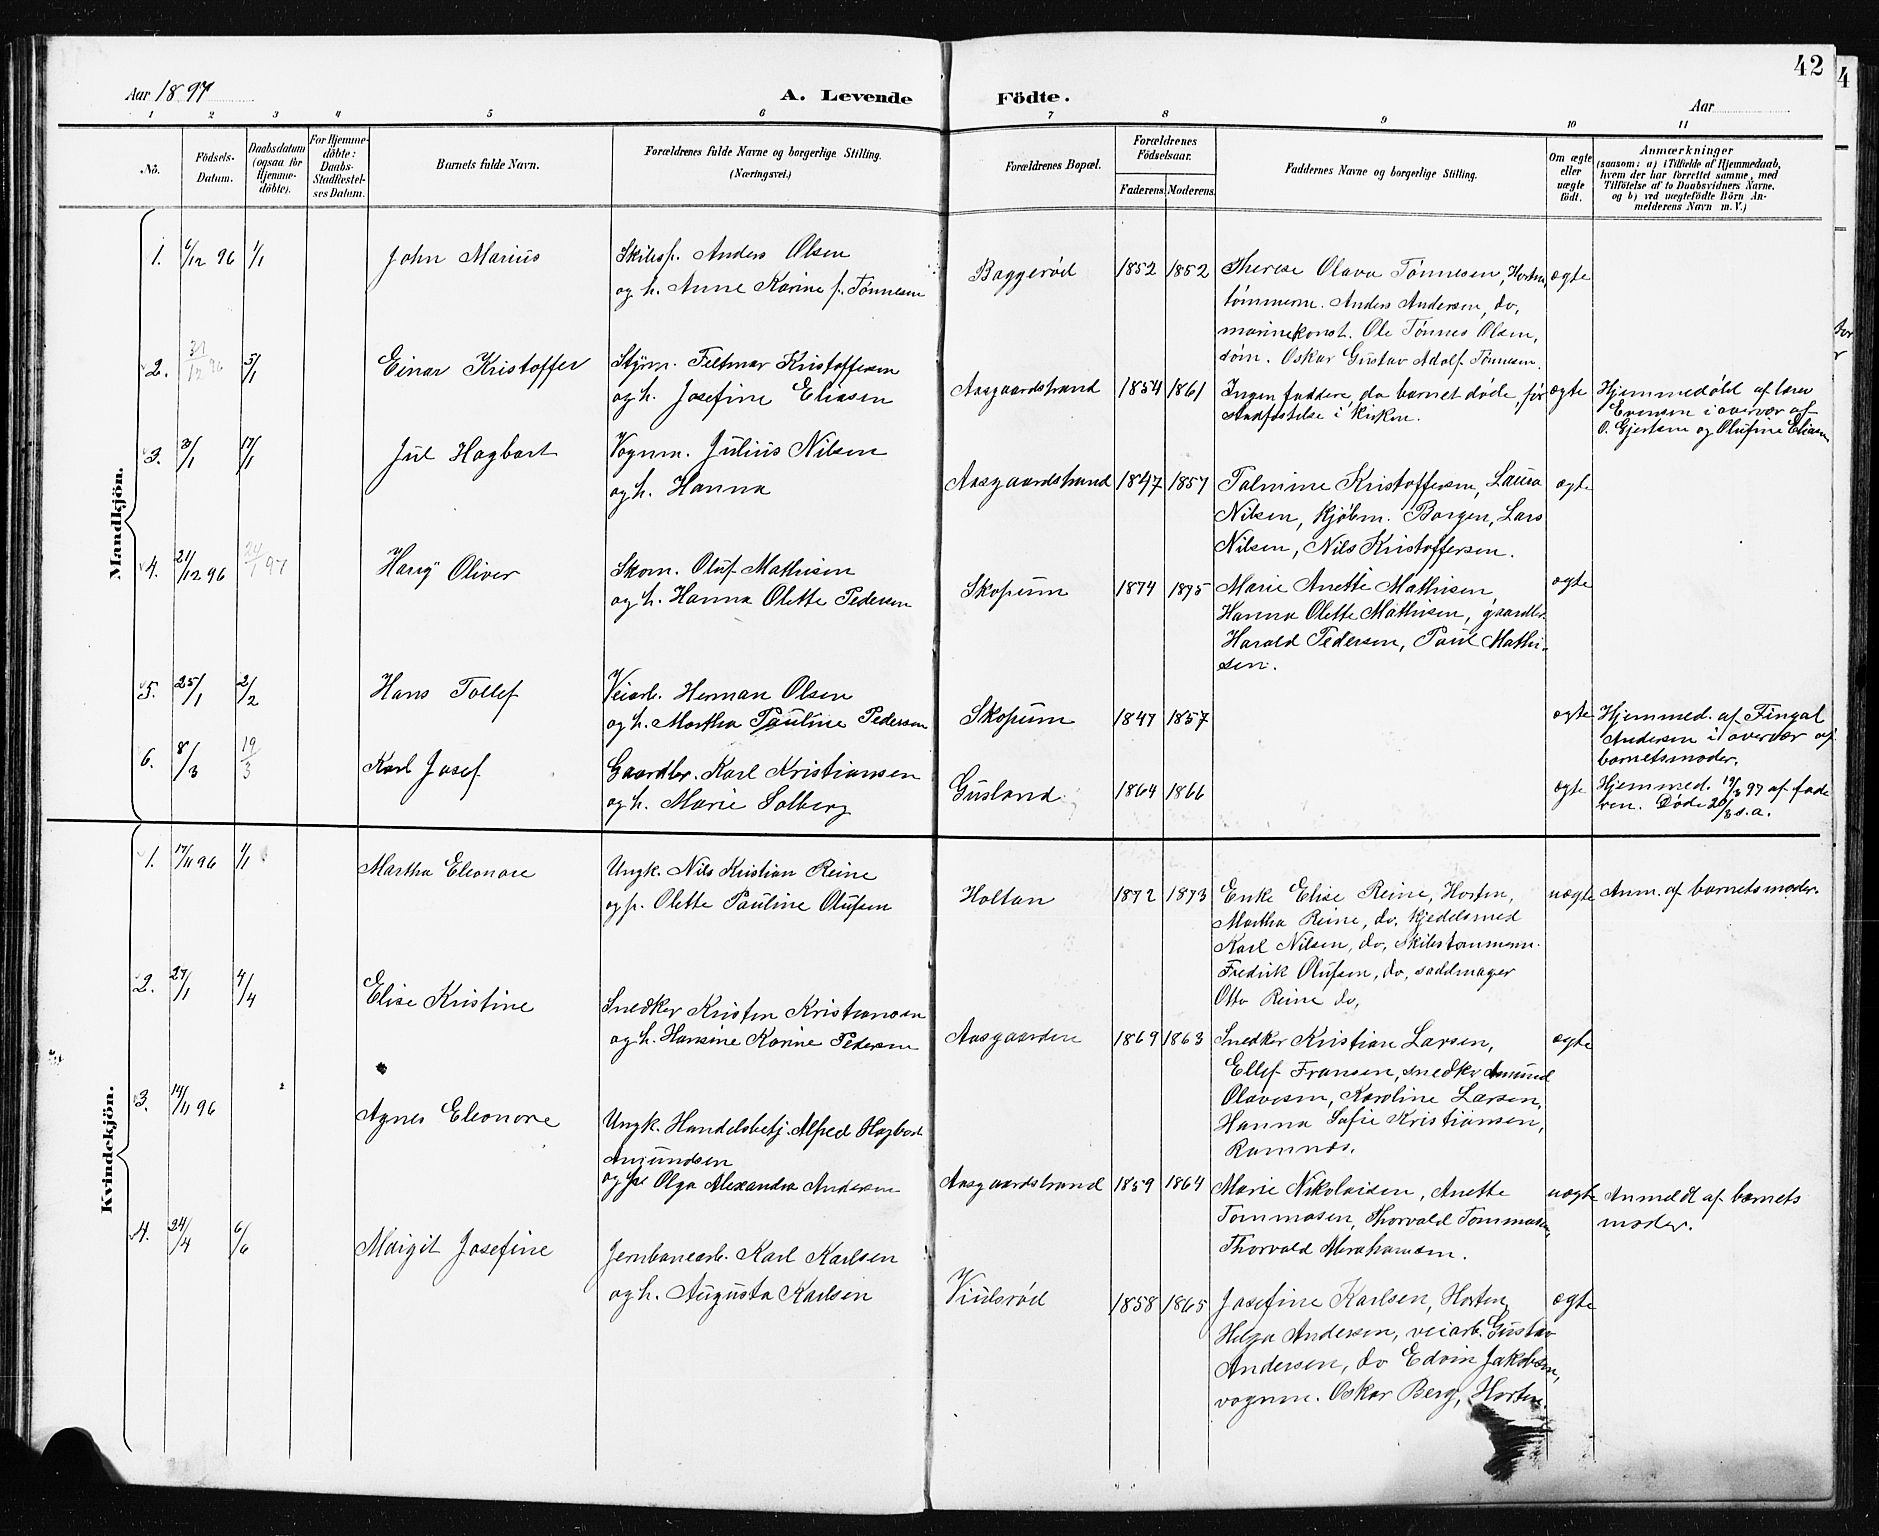 42
4
Aar 1897
A. Levende
Födte.
Aar
1 2 3 4 5 6 7 8 9 10 11
No.
Födsels-
Datum.
Daabsdatum
(ogsaa for
Hjemme-
döbte).
For Hjemme-
döbte:
Daabs-
Stadfæstel-
ses Datum.
Barnets fulde Navn.
Forældrenes fulde Navne og borgerlige Stilling.
(Næringsvei.)
Forældrenes Bopæl.
Forældrenes
Födselsaar.
Faderens. Moderens.
Faddernes Navne og borgerlige Stilling.
Om ægte
eller
uægte
født.
Anmærkninger
(saasom: a) i Tilfælde af Hjemmedaab,
hvem der har forrettet samme, med
Tilföielse af to Daabsvidners Navne.
og b) ved uægtefödte Börn An-
melderens Navn m. V.)
Mandkjön.
1. 6/12 96 1/1 John Marius
Skibsf. Anders Olsen
og h. Anne Karine f. Tønnesen
Baggerød 1852 1852
Therese Olava Tønnesen, Horten,
tømmerm. Anders Andersen, do,
marinekonst. Ole Tønnes Olsen,
søm. Oskar Gustav Adolf Tønnesen.
ægte
2. 31/12 96 3/1 Einar Kristoffer
Styrm. Feltmar Kristoffersen
og h. Josefine Eliasen
Aasgaardstrand 1854 1861
Ingen faddere, da barnet døde før
stadfæstelse i kirken.
ægte
Hjemmedøbt af lærer
Evensen i overvær af
O. Gjertsen og Olufine Eliasen
3. 3/1 17/1 Jul Hagbart
Vognm. Julius Nilsen
og h. Hanna
Aasgaardstrand 1847 1857
Talmine Kristoffersen, Laura
Nilsen, kjøbm. Borgen, Lars
Nilsen, Nils Kristoffersen.
ægte
4. 21/12 96 24/1 97 Harry Oliver
Skom. Oluf Mathisen
og h. Hanna Olette Pedersen
Skopum 1874 1875
Marie Anette Mathisen,
Hanna Olette Mathisen, gaardbr.
Harald Pedersen, Paul Mathi-
sen.
ægte
5. 25/1 2/2 Hans Tollef
Veiarb. Herman Olsen
og h. Martha Pauline Pedersen
Skopum 1847 1857
ægte
Hjemmed. af Fingal
Andersen i overvær af
barnetsmoder.
6. 8/3 19/3 Karl Josef
Gaardbr. Karl Kristiansen
og h. Marie Solberg
Gusland 1864 1866
ægte
Hjemmed. 19/3 97 af fade
ren. Døde 20/3 s.a.
Kvindekjön.
1. 17/11 96 1/1 Martha Eleonore
Ungk. Nils Kristian Reine
og p. Olette Pauline Olufsen
Holtan 1872 1873
Enke Elise Reine, Horten,
Martha Reine, do, kjedelsmed
Karl Nilsen, do, skibstømmerm.
Fredrik Olufsen, do, sadelmager
Otto Reine do,
uægte
Anm. af barnets moder.
2. 27/1 4/4 Elise Kristine
Snedker Kristen Kristiansen
og h. Hansine Karine Pedersen
Aasgaarden 1869 1863
Snedker Kristian Larsen,
Ellef Fransen, snedker Amund
Olavesen, Karoline Larsen,
Hanna Sofie Kristiansen,
Ramnes.
ægte
3. 14/11 96 Agnes Eleonore
Ungk. Handelsbetj. Alfred Hagbart
Amundsen
og pe Olga Alexandra Andersen
Aasgaardstrand 1859 1864
Marie Nikolaisen, Anette
Tommasen, Thorvald Tommasen,
Thorvald Abrahamsen.
uægte
Anmeldt af barnets
moder.
4. 24/4 6/6 Margit Josefine
Jernbanearb. Karl Karlsen
og h. Augusta Karlsen
Viulsrød 1858 1865
Josefine Karlsen, Horten,
Helga Andersen, veiarb. Gustav
Andersen, do Edvin Jakobsen,
vognm. Oskar Berg, Horten.
ægte